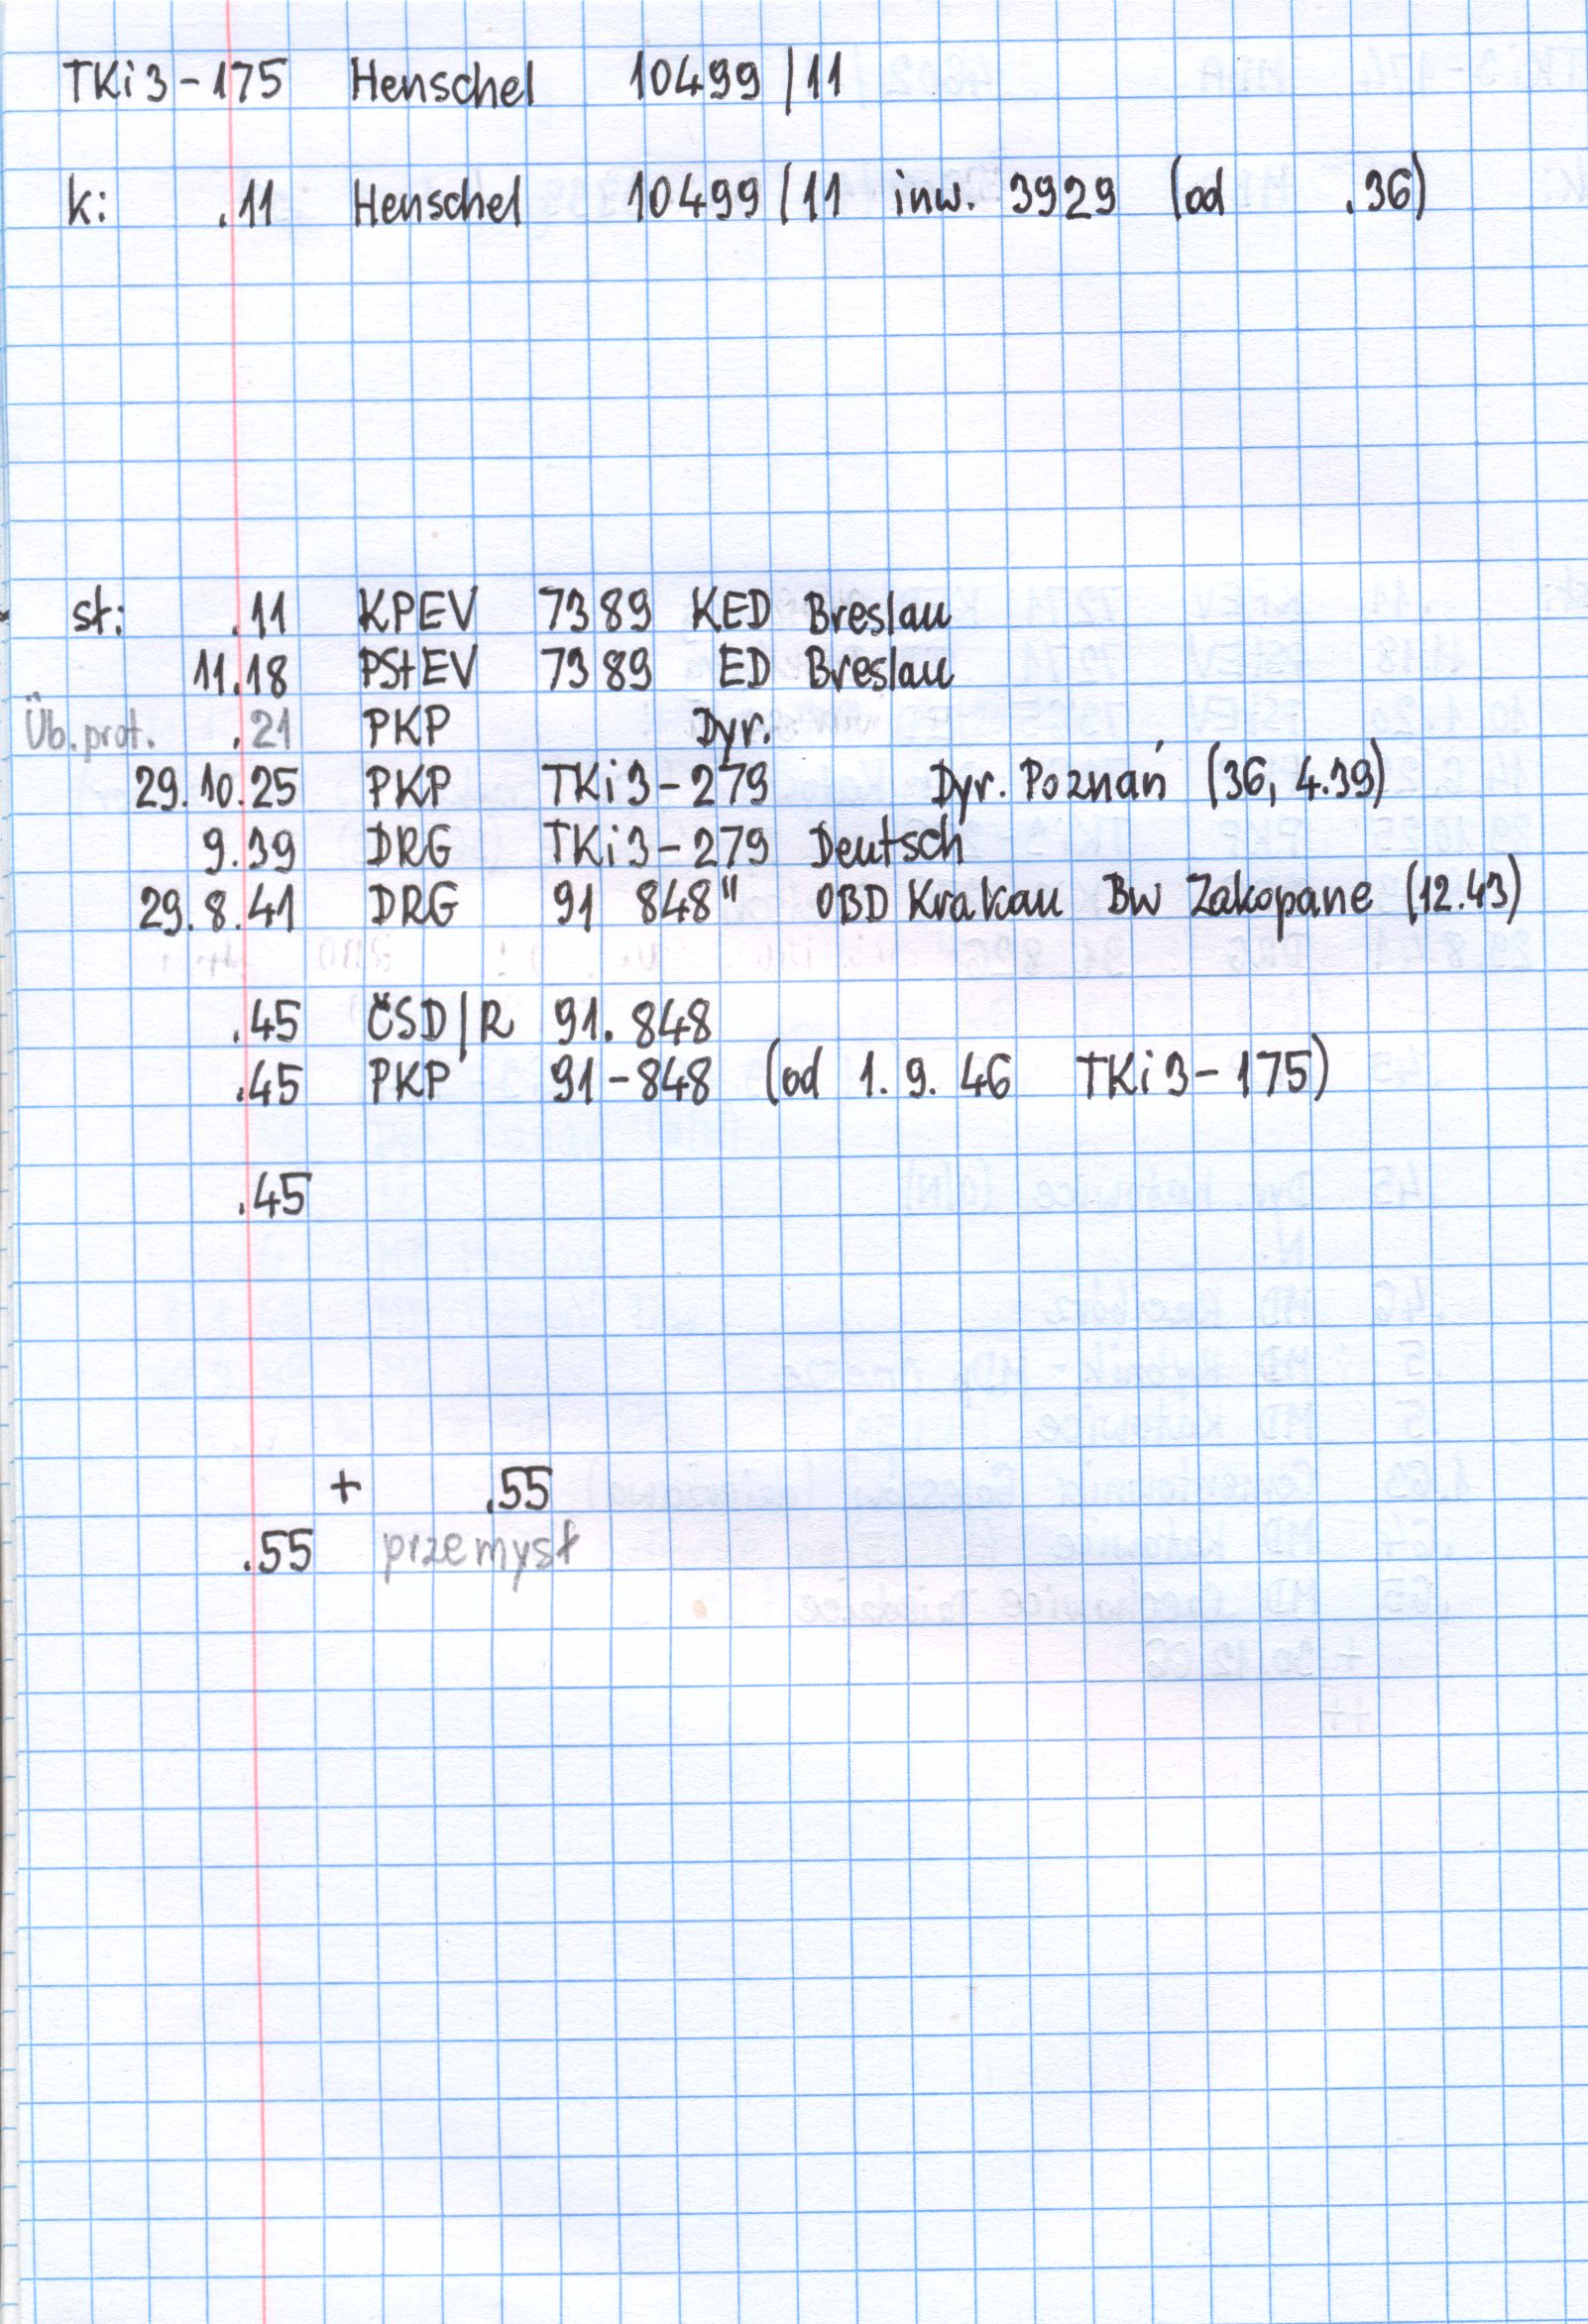 TKi3-175 Henschel 10499/11
k: .11 Henschel 10499/11 inw. 3929 (od .36)
st: .11 KPEV 7389 KED Breslau
11.18 PStEV 7389 ED Breslau
Üb.prot. .21 PKP Dyr.
29.10.25 PKP TKi3-279 Dyr. Poznań (36, 4.39)
9.39 DRG TKi3-279 Deutsch
29.8.41 DRG 91 848" OBD Krakau Bw Zakopane (12.43)
.45 ČSD/R 91.848
.45 PKP 91-848 (od 1.9.46 TKi3-175)
.45
+ .55
.55 przemysł